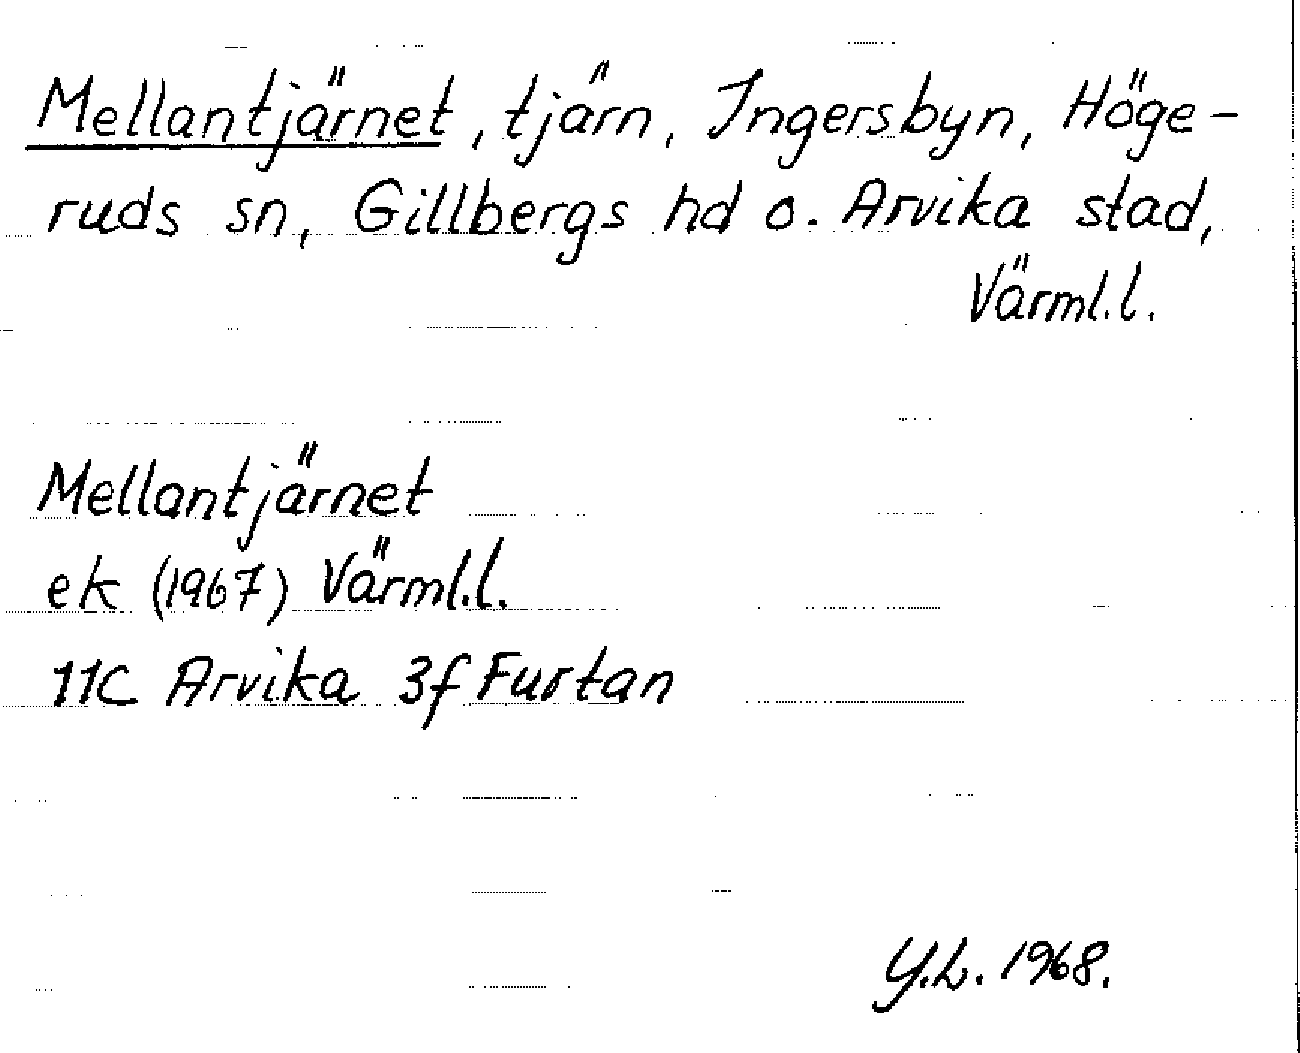 Mellantjärnet, tjärn, Ingersbyn, Höge-
ruds sn, Gillbergs hd o. Arvika stad,
Värml.l.
Mellantjärnet
ek (1967) Värml.l.
11C Arvika 3f Furtan
Y.L. 1968.